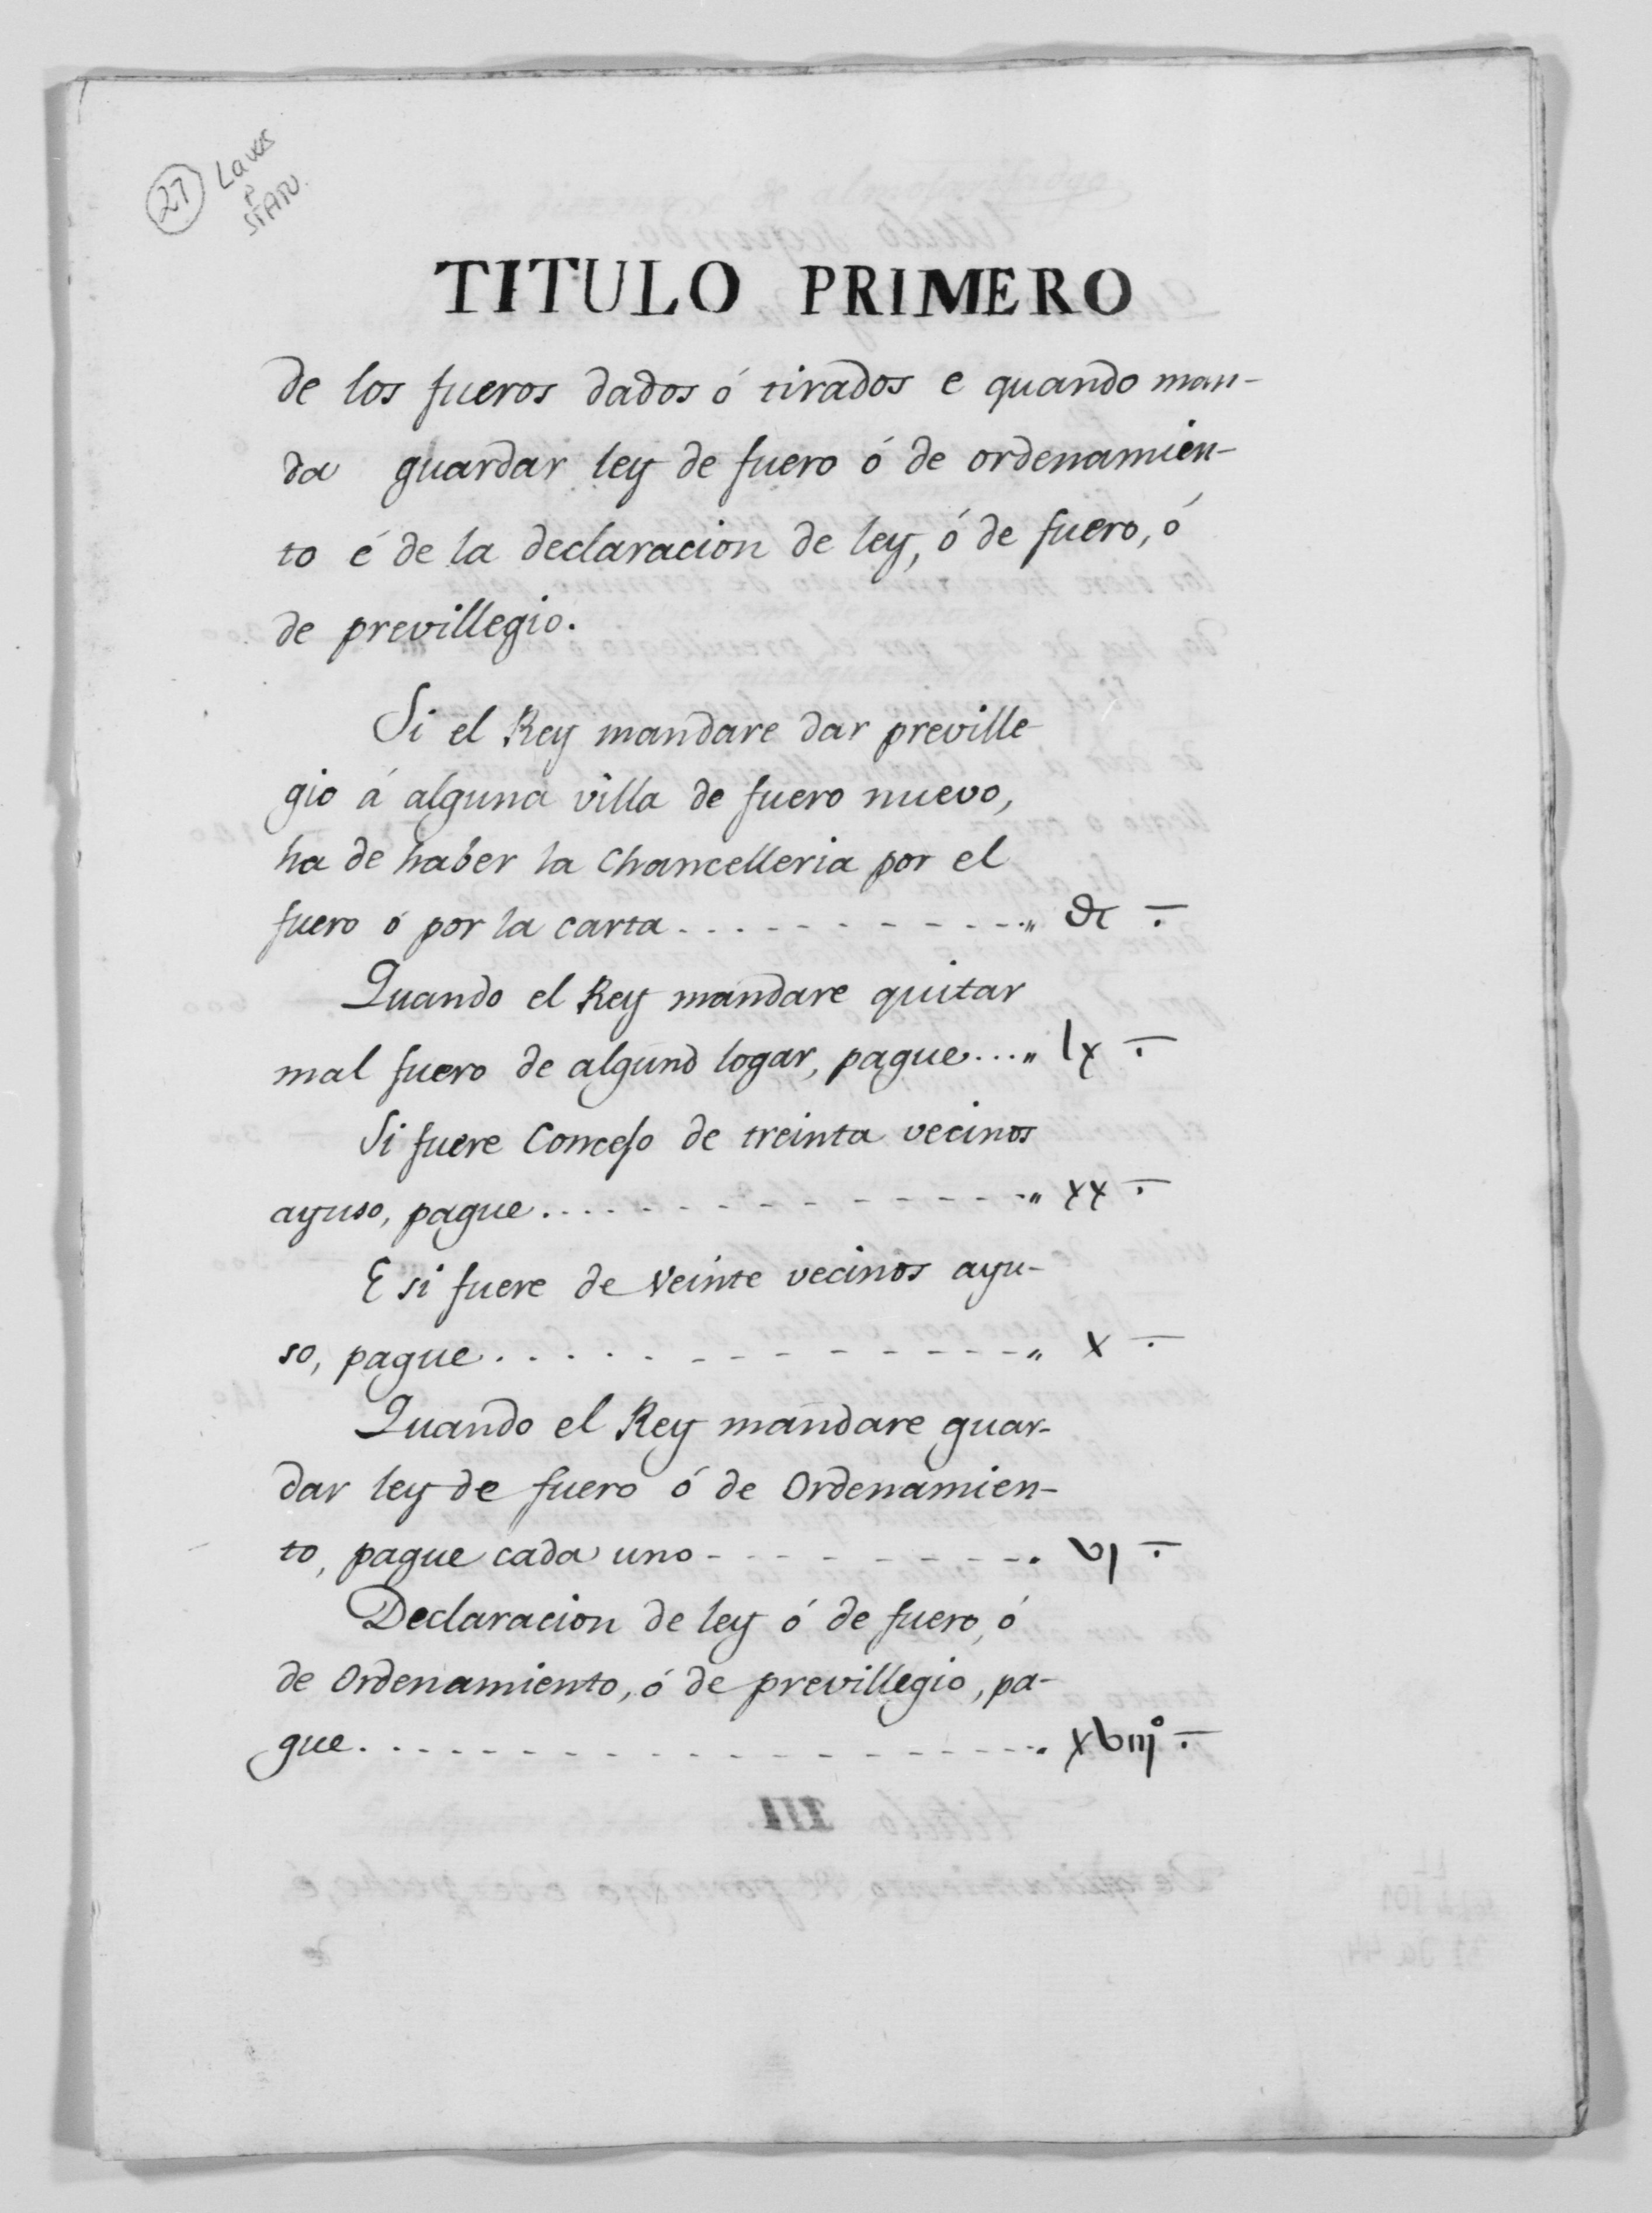 27
Laws
&
STATU.
TITULO PRIMERO
de los fueros dados ó tirados e quando man-
da guardar ley de fuero ó de ordenamien-
to é de la declaracion de ley, ó de fuero, ó
de previllegio.
Si el Rey mandare dar preville-
gio á alguna villa de fuero nuevo,
ha de haber la Chancelleria por el
fuero ó por la carta - - - - - - - - - - - „ dc
Quando el Rey mandare quitar
mal fuero de alguno logar, pague . . . „ lx
Si fuere Concejo de treinta vecinos
ayuso, pague . . . . - - - - - - - - - - „ xx
E si fuere de veinte vecinos ayu-
so, pague . . . . . - - - - - - - - - „ x
Quando el Rey mandare guar-
dar ley de fuero ó de Ordenamien-
to, pague cada uno - - - - - - - - - . vj
Declaracion de ley ó de fuero, ó
de Ordenamiento, ó de previllegio, pa-
gue . . . . . . - - - - - - - - - - - - - . xviijº